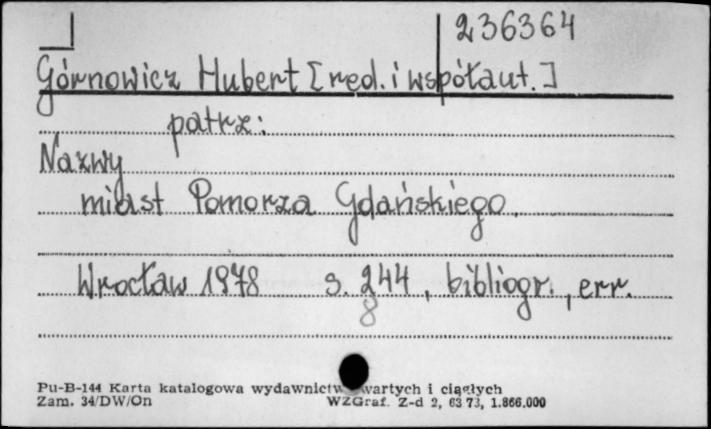 236364
Górnowicz Hubert [red. i współaut.]
patrz:
Nazwy
miast Pomorza Gdańskiego.
Wrocław 1978 s. 244, bibliogr., err.
8
Pu-B-144 Karta katalogowa wydawnictw zwartych i ciągłych
Zam. 34/DW/On WZGraf. Z-d 2, 63 73, 1.866.000